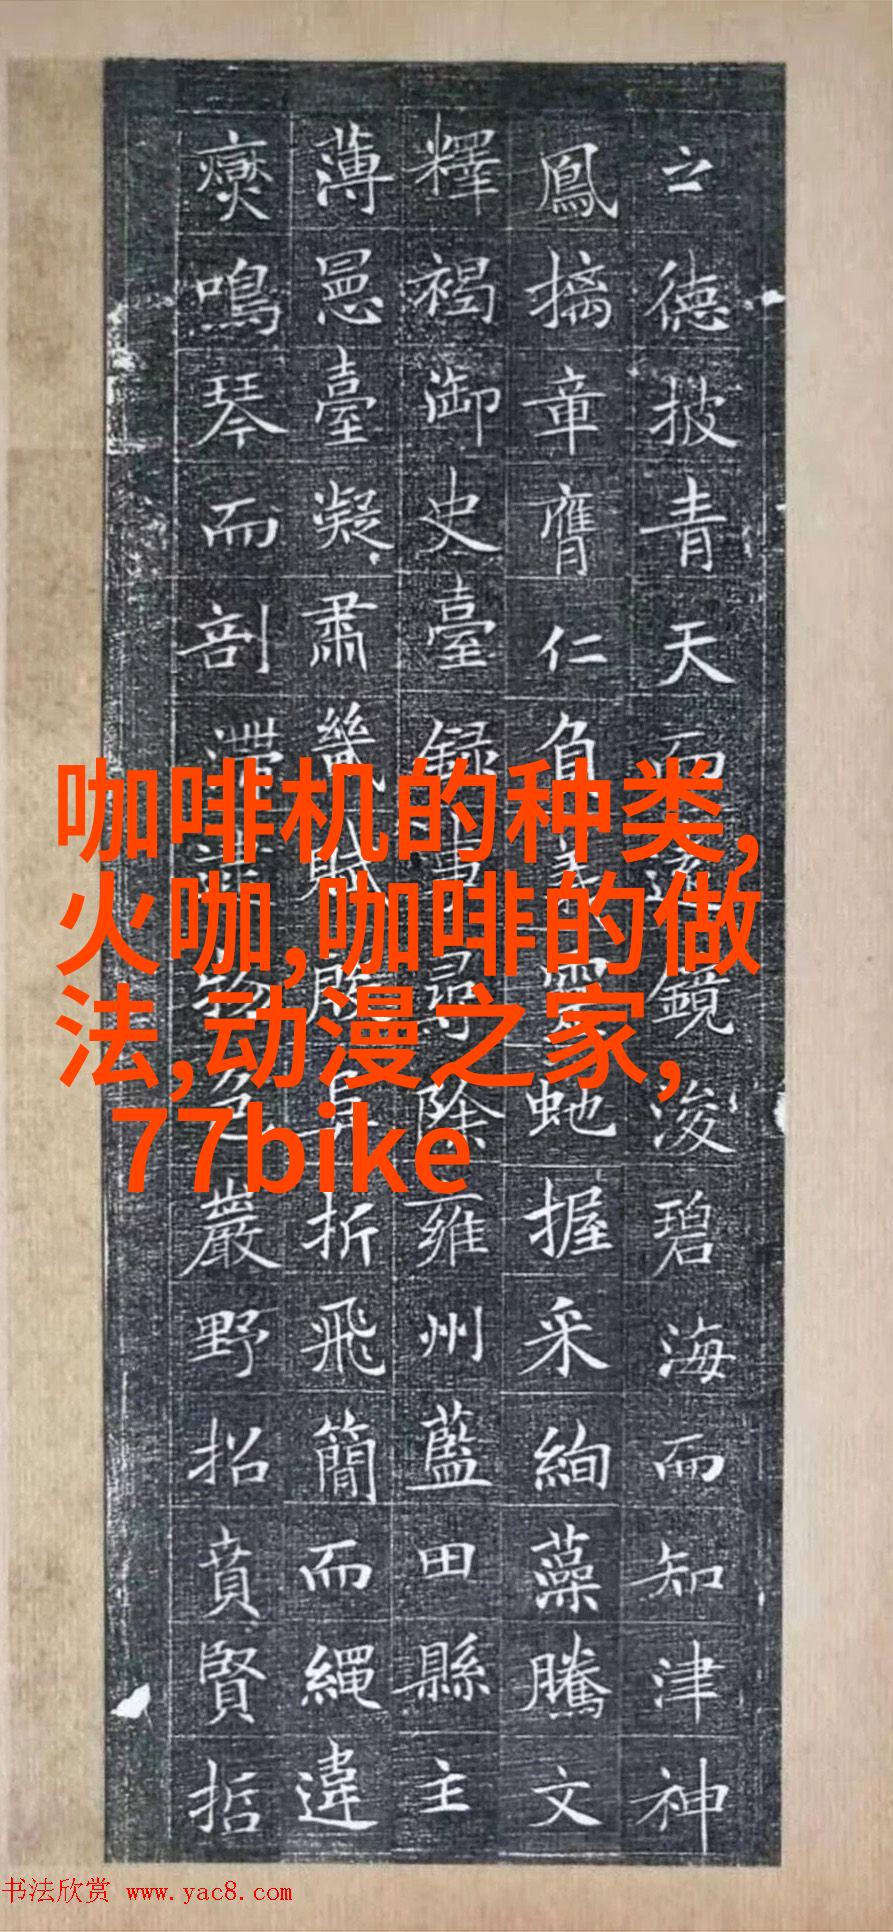 之德披青天而鏡浚碧海而知津神
鳳摛章膺仁負虵握采絢藻騰文
釋褐御史臺録事尋除雍州藍田縣主
薄臺凝肅折飛簡而繩違
鳴琴而剖滯物色巖野招賁賢哲
咖啡机的种类,
火咖,咖啡的做
法,动漫之家,
77bike
书法欣赏 www.yac8.com